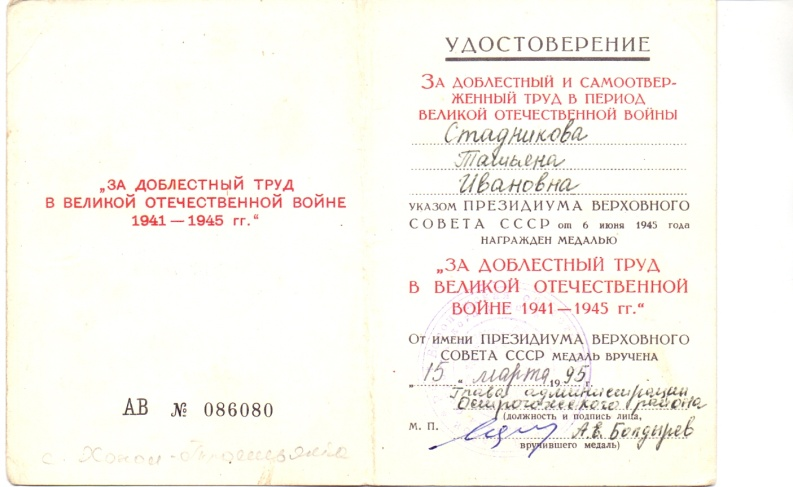 „ЗА ДОБЛЕСТНЫЙ ТРУД
В ВЕЛИКОЙ ОТЕЧЕСТВЕННОЙ ВОЙНЕ
1941—1945 гг.“
АВ № 086080
с. Хохол-
УДОСТОВЕРЕНИЕ
ЗА ДОБЛЕСТНЫЙ И САМООТВЕР-
ЖЕННЫЙ ТРУД В ПЕРИОД
ВЕЛИКОЙ ОТЕЧЕСТВЕННОЙ ВОЙНЫ
Стадникова
Татьяна
Ивановна
УКАЗОМ ПРЕЗИДИУМА ВЕРХОВНОГО
СОВЕТА СССР от 6 июня 1945 года
НАГРАЖДЕН МЕДАЛЬЮ
„ЗА ДОБЛЕСТНЫЙ ТРУД
В ВЕЛИКОЙ ОТЕЧЕСТВЕННОЙ
ВОЙНЕ 1941—1945 гг.“
ОТ ИМЕНИ ПРЕЗИДИУМА ВЕРХОВНОГО
СОВЕТА СССР МЕДАЛЬ ВРУЧЕНА
„15“ марта 1995 г.
Глава администрации
Острогожского района
(должность и подпись лица,
М. П. А.В. Болдырев
вручившего медаль)